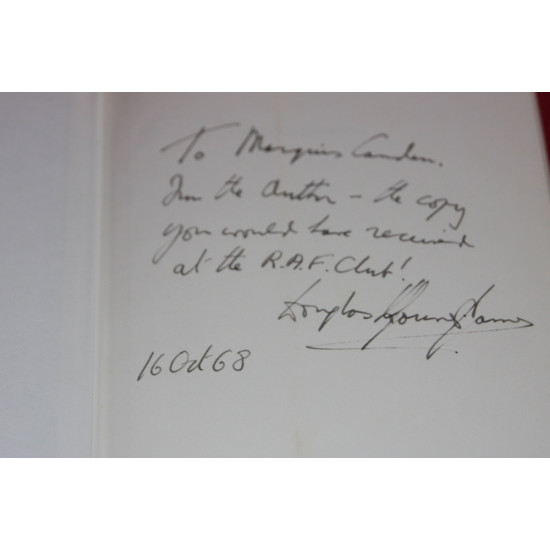 To Marquis Camden.
From the Author - the copy
you would have received
at the R.A.F. Club!
Douglas Young-James
16 Oct 68